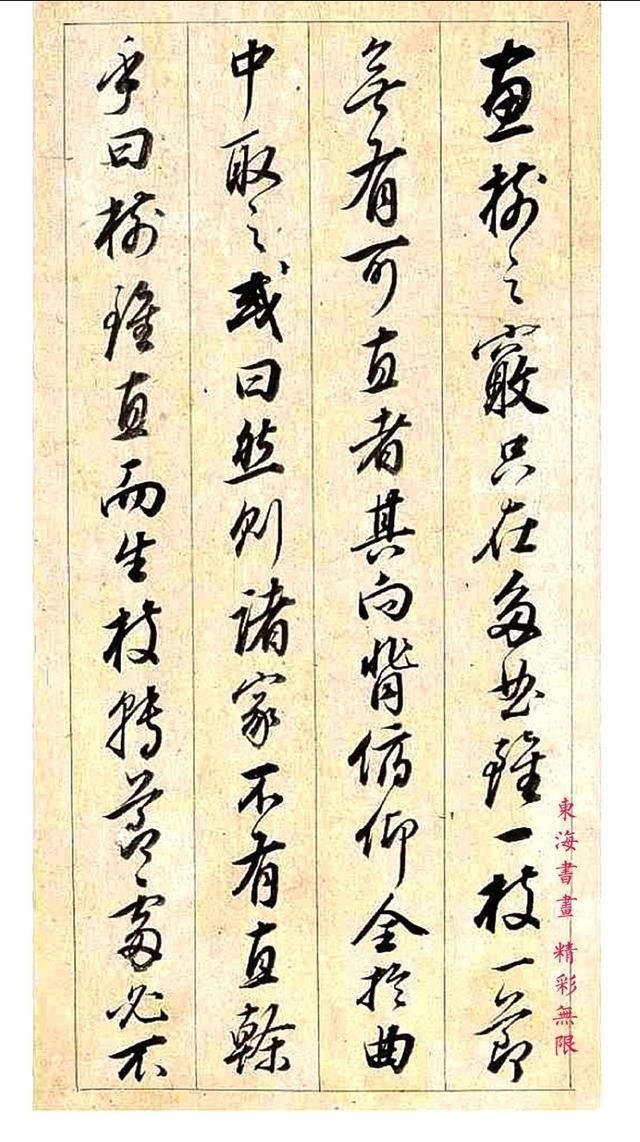 畫樹之竅只在多曲雖一枝一節
無有可直者其向背俯仰全於曲
中取之或曰然則諸家不有直幹
乎曰樹雖直而生枝轉節處必不
東海書畫 精彩無限